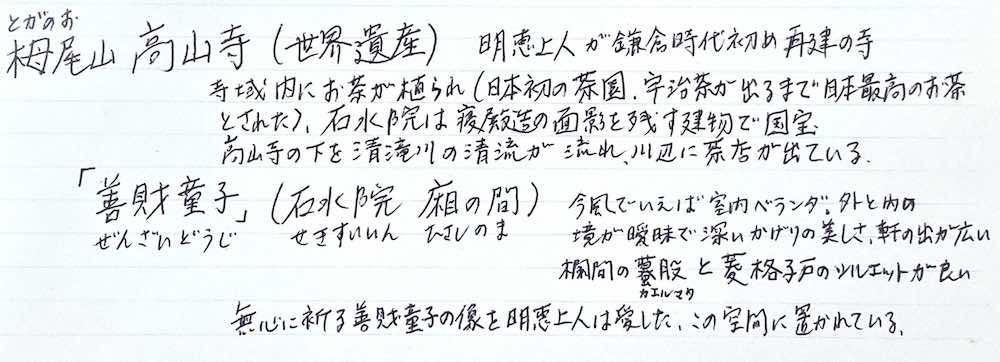 とがのお
栂尾山 高山寺（世界遺産） 明恵上人が鎌倉時代初め再建の寺
寺域内にお茶が植られ（日本初の茶園．宇治茶が出るまで日本最高のお茶
とされた）、石水院は寝殿造の面影を残す建物で国宝
高山寺の下を清滝川の清流が流れ、川辺に茶店が出ている．
「善財童子」（石水院 廂の間） 今風でいえば室内ベランダ。外と内の
ぜんざいどうじ せきすいいん ひさしのま 境が曖昧で深いかげりの美しさ、軒の出が広い
欄間の蟇股と菱格子戸のシルエットが良い
カエルマタ
無心に祈る善財童子の像を明恵上人は愛した、この空間に置かれている．